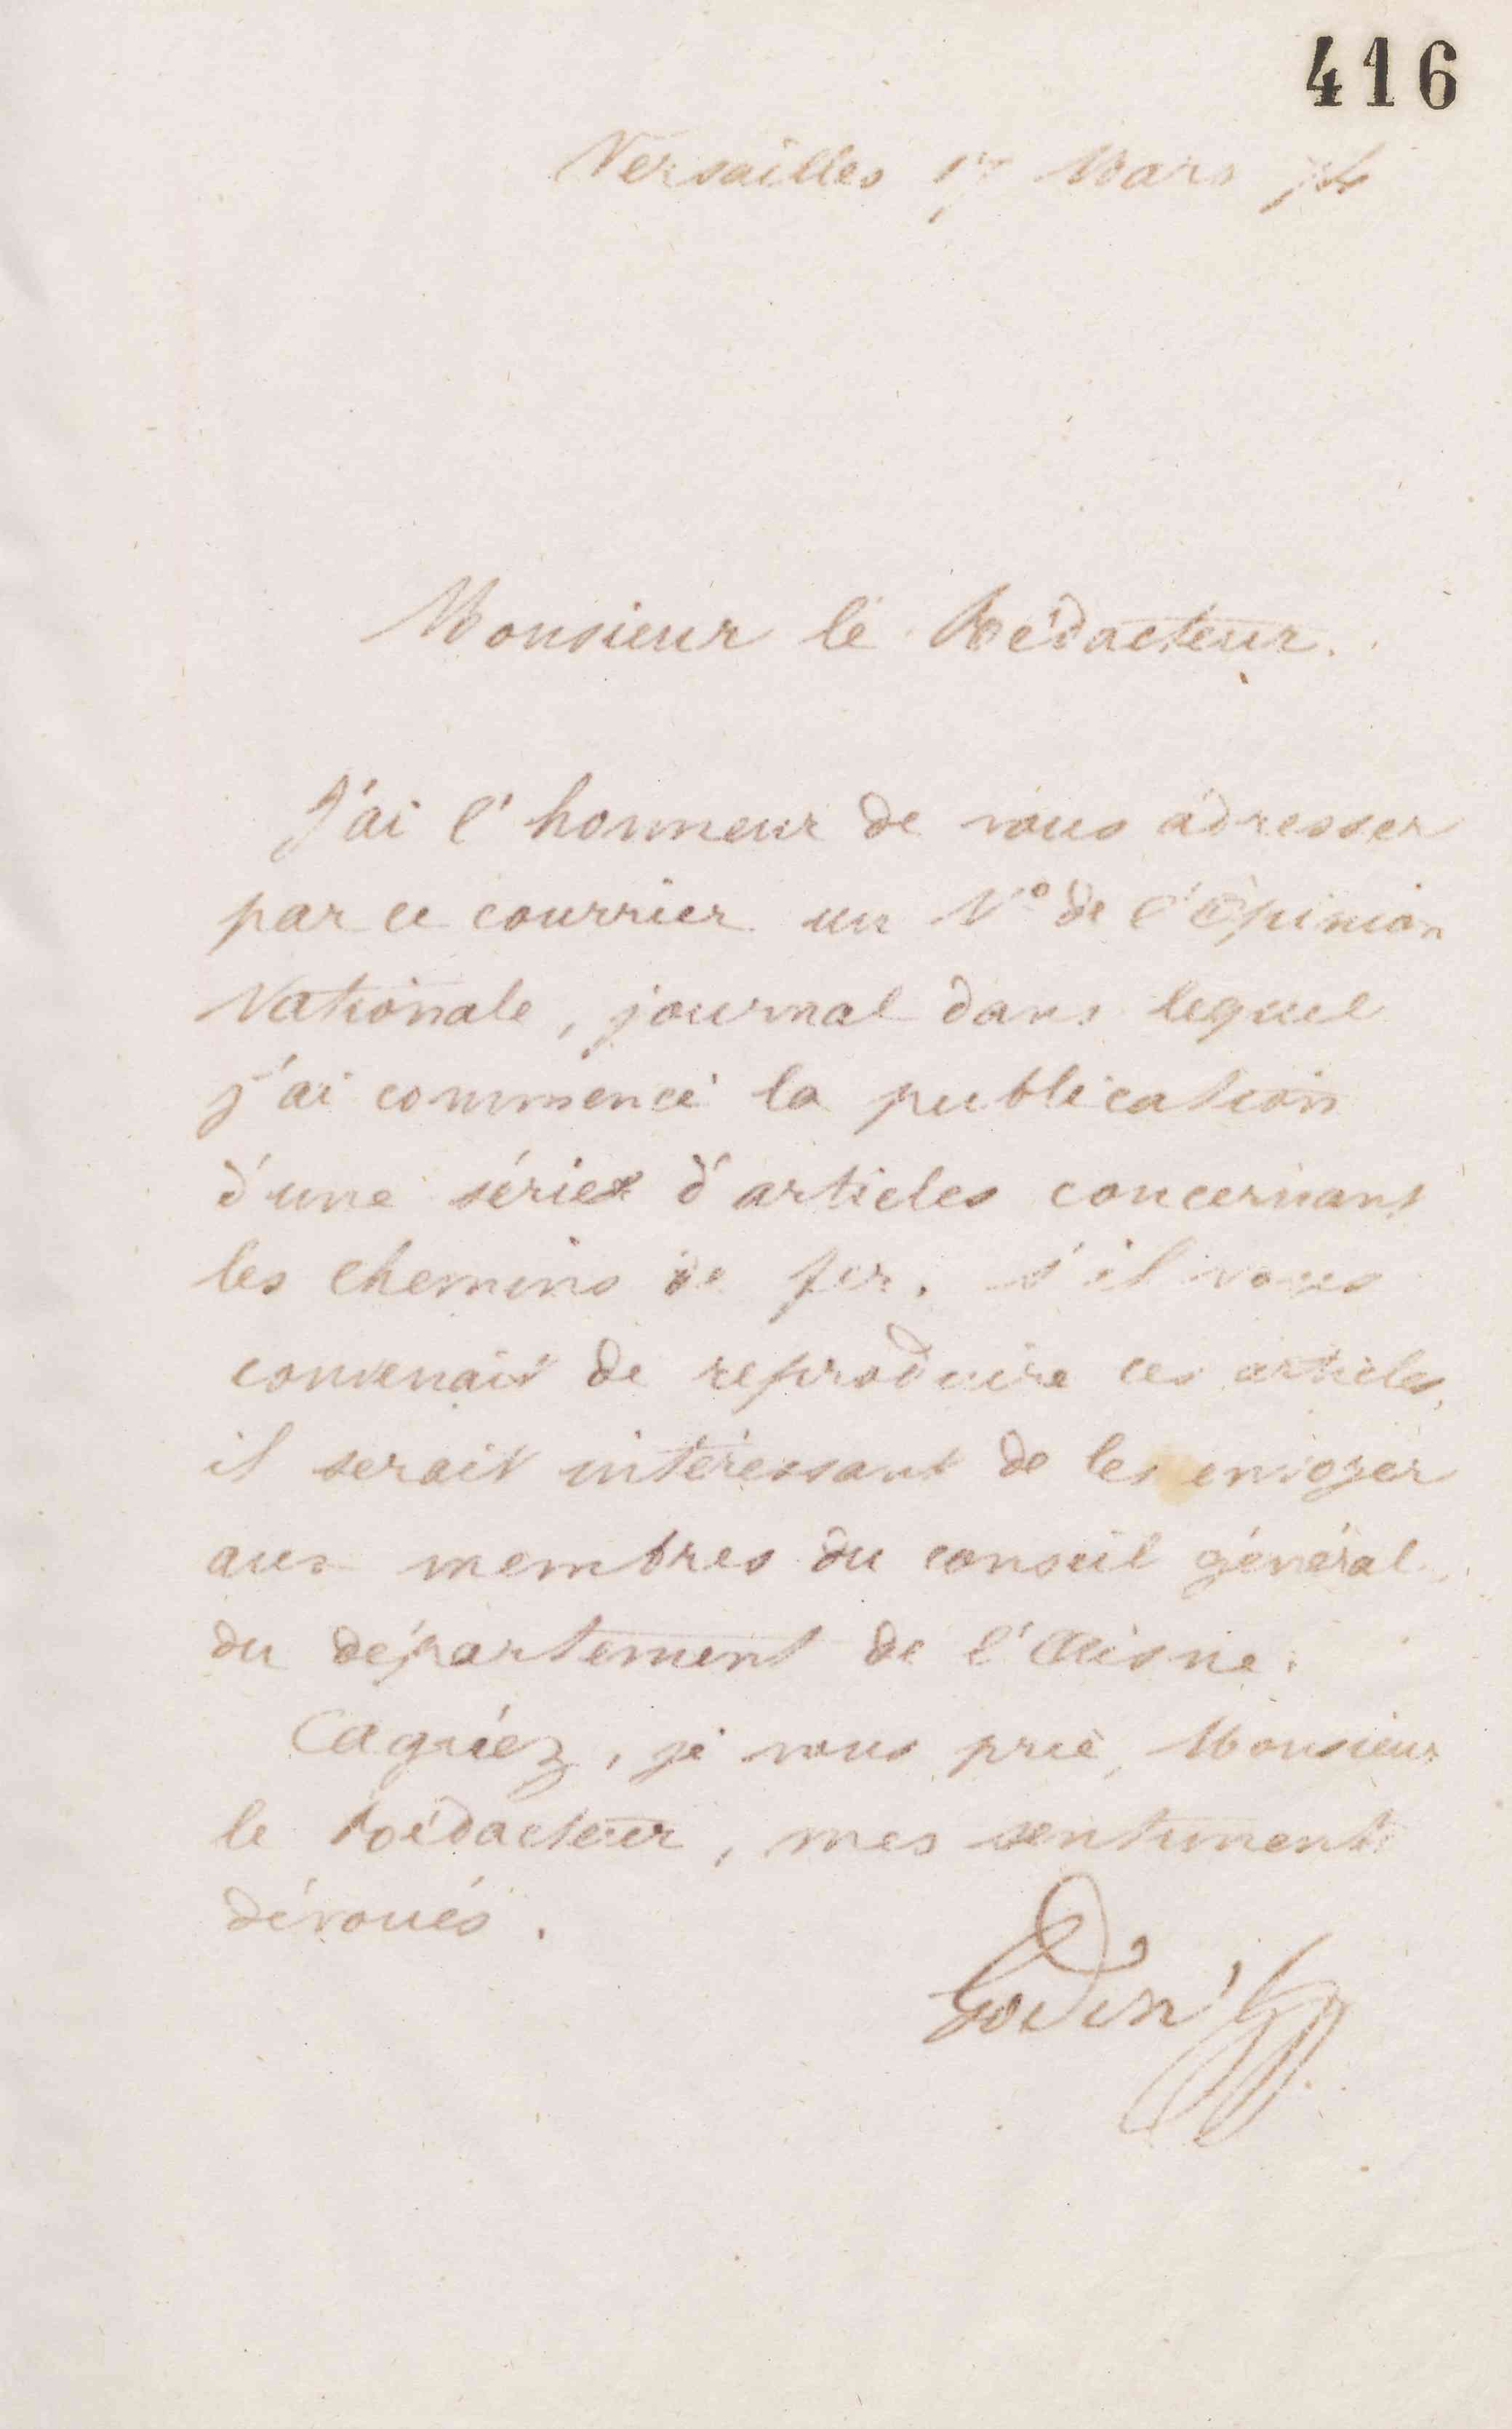 416
Versailles 17 Mars 74
Monsieur le Rédacteur.
J'ai l'honneur de vous adresser
par ce courrier un N° de l'Opinion
Nationale, journal dans lequel
j'ai commencé la publication
d'une série d'articles concernant
les chemins de fer. s'il vous
convenait de reproduire ces articles,
il serait intéressant de les envoyer
aux membres du conseil général
du département de l'Aisne.
Agréez, je vous prie, Monsieur
le Rédacteur, mes sentiments
dévoués.
Godin